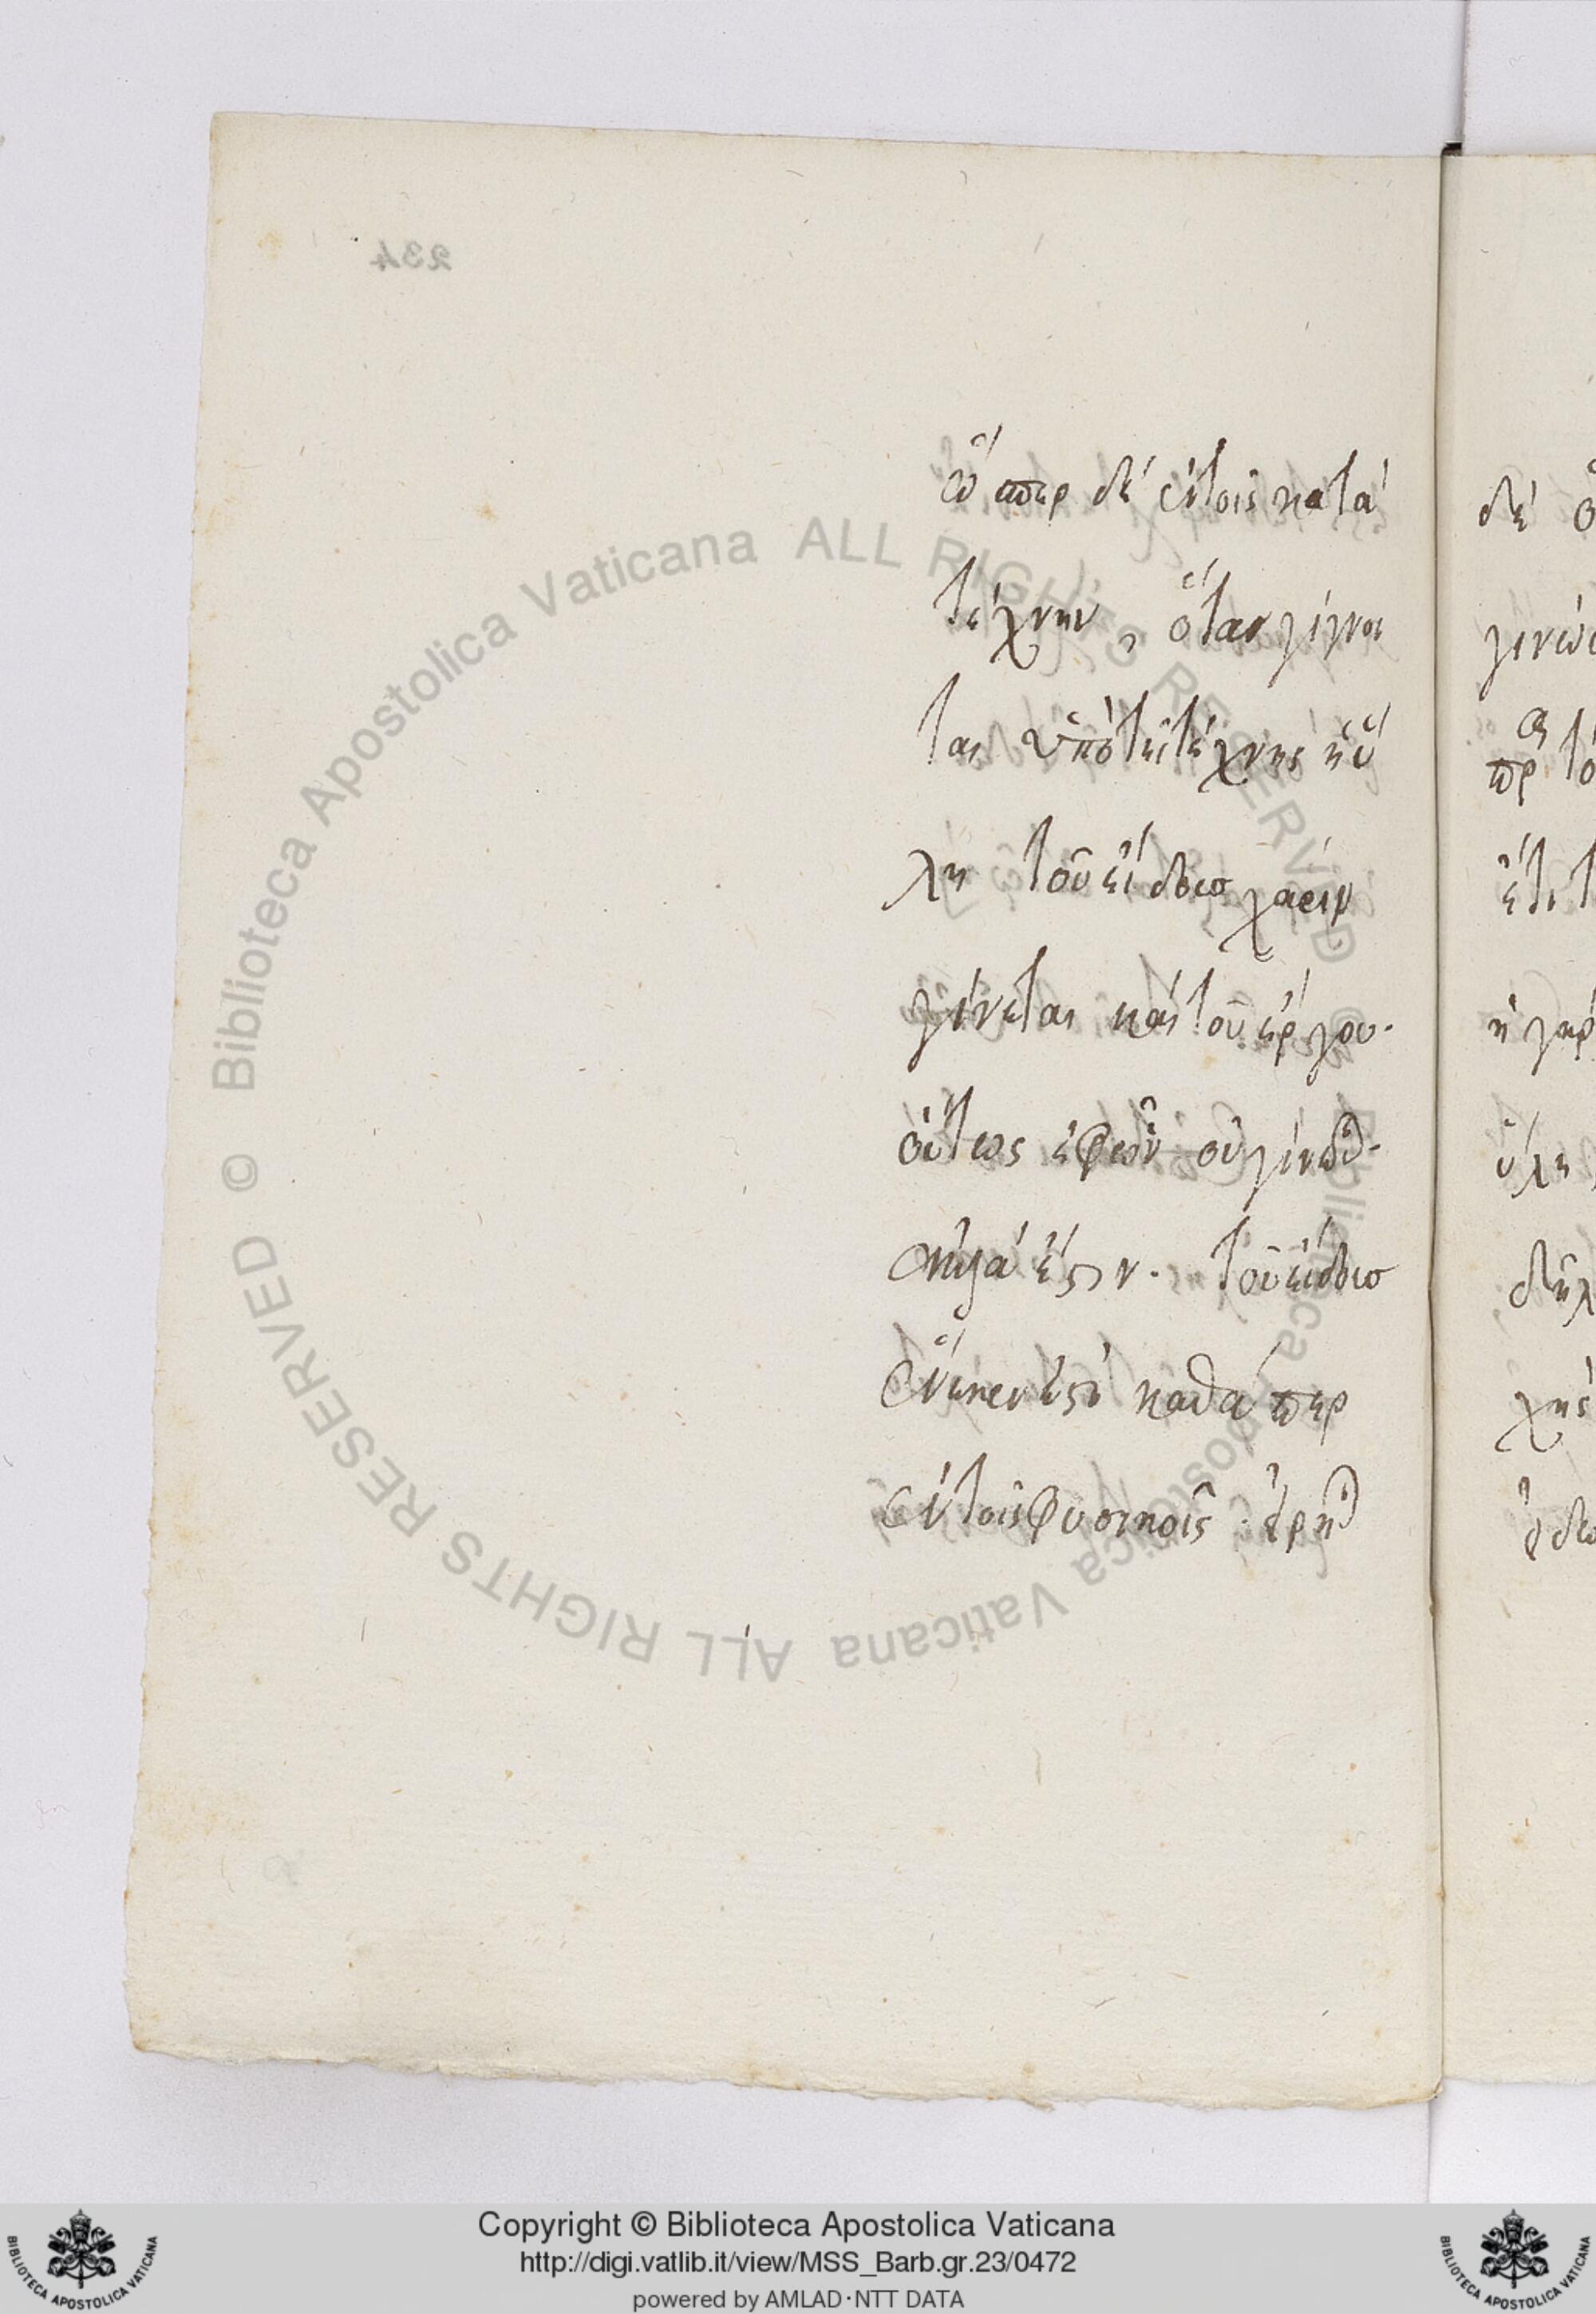 234
ὥσπερ δὲ ἐν τοῖς κατὰ
τέχνην, ὅταν γίγνη
ται ὑπὸ τῆς τέχνης ἡ ὕ
λη τοῦ εἴδεος χάριν
γίνεται καὶ τοῦ ἔργου.
οὕτως ἐφ' ὧν οὐ γίνεται.
ἀλλά ἐστιν. τοῦ εἴδεος
ἕνεκεν ἐστὶ καθάπερ
ἐν τοῖς φυσικοῖς
δὲ
ἔτι τ
ἡ γὰρ
ὕλη
χῆς
© Biblioteca Apostolica Vaticana ALL RIGHTS RESERVED © Biblioteca Apostolica Vaticana ALL RIGHTS RESERVED
Copyright © Biblioteca Apostolica Vaticana
http://digi.vatlib.it/view/MSS_Barb.gr.23/0472
powered by AMLAD·NTT DATA
BIBLIOTECA APOSTOLICA VATICANA
BIBLIOTECA APOSTOLICA VATICANA